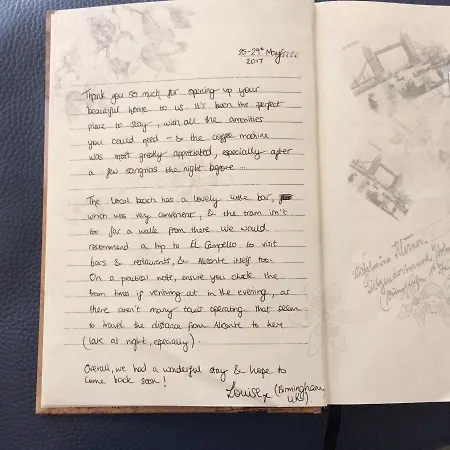 25-29th May
2017
Thank you so much for opening up your
beautiful home to us. It's been the perfect
place to stay, with all the amenities
you could need - & the coffee machine
was most greatly appreciated, especially after
a few sangrias the night before...
The local beach has a lovely little bar,
which was very convenient, & the tram isn't
too far a walk from there. We would
recommend a trip to El Campello to visit
bars & restaurants, & Alicante itself too.
On a practical note, ensure you check the
tram times if venturing out in the evening, as
there aren't many taxis operating that seem
to travel the distance from Alicante to here
(late at night, especially).
Overall, we had a wonderful stay & hope to
come back soon!
Louise x (Birmingham,
UK)